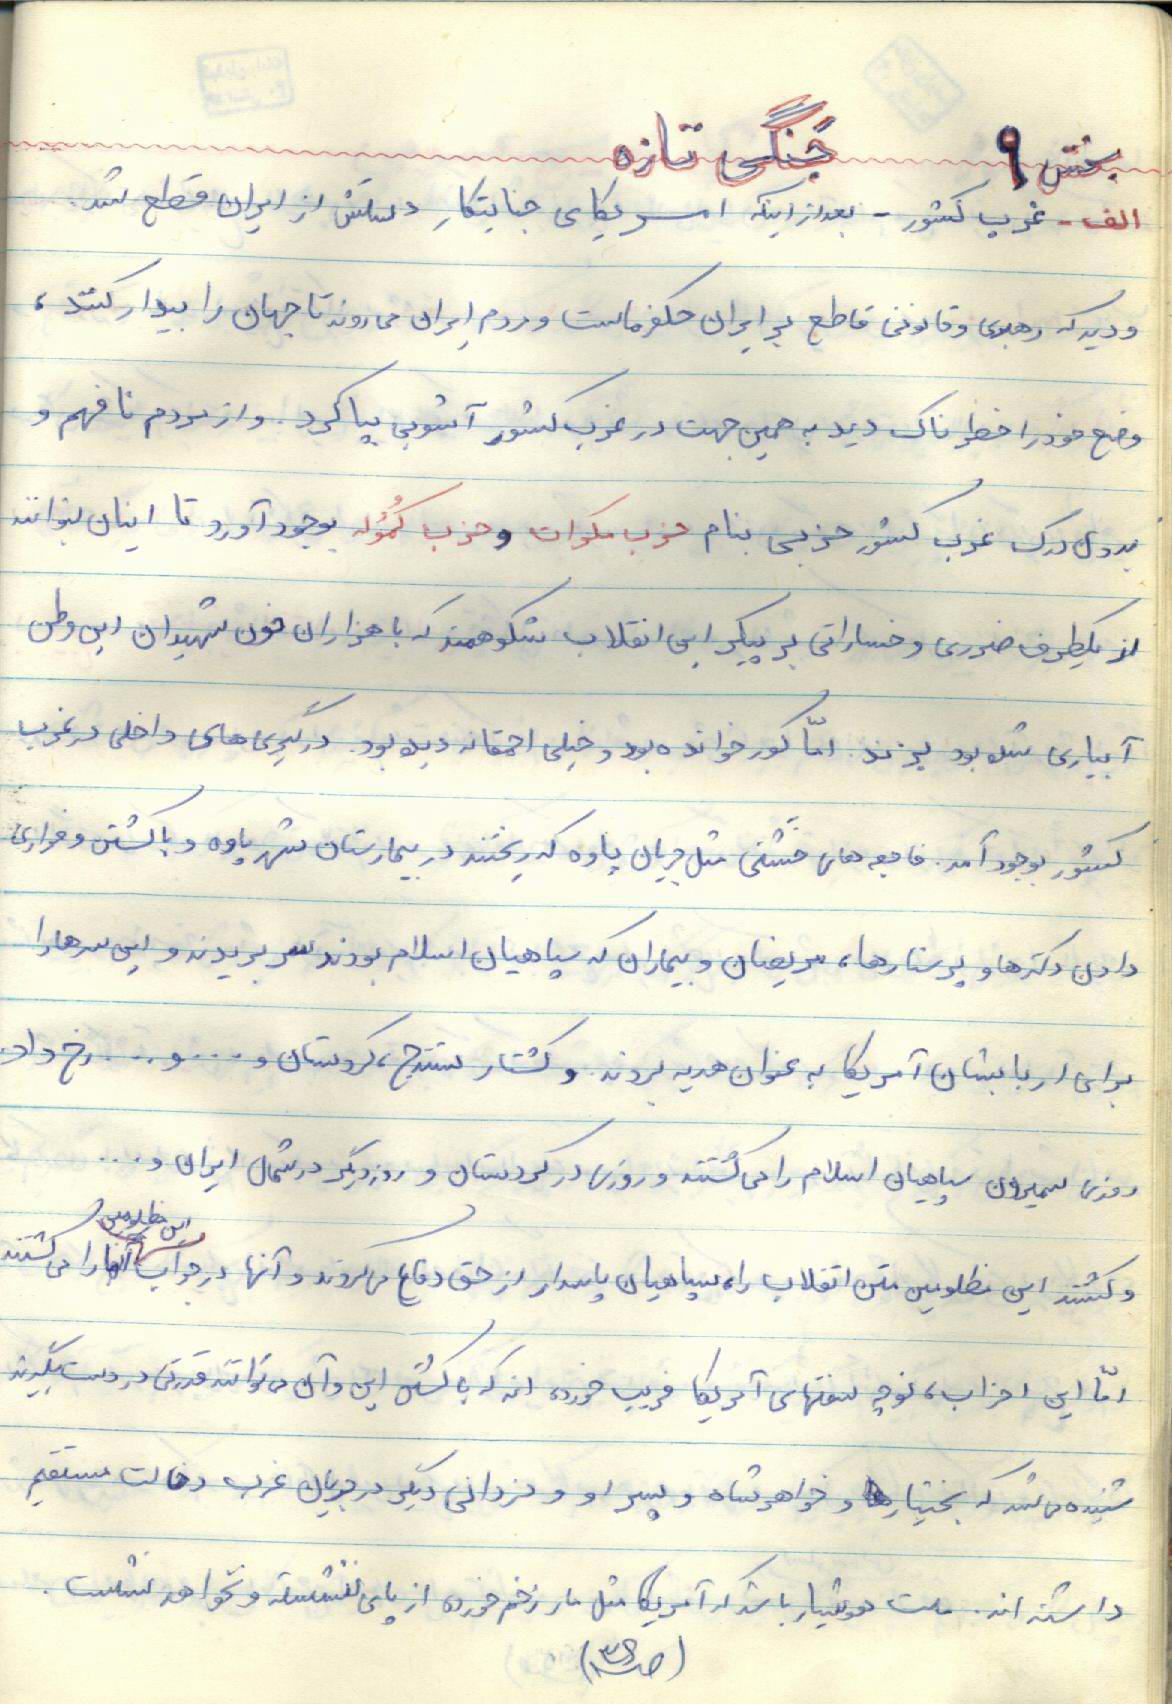 بخش ۹ جنگی تازه
الف - غرب کشور - بعد از اینکه امریکای جنایتکار دستش از ایران قطع شد.
و دید که رهبری و قانونی قاطع بر ایران حکمفرماست و مردم ایران می روند تا جهان را بیدار کنند،
وضع خود را خطرناک دید به همین جهت در غرب کشور آشوبی بپا کرد. و از مردم نافهم و
بدون درک غرب کشور حزبی بنام حزب دمکرات و حزب کُمُوله بوجود آورد تا اینان بتوانند
از یکطرف ضرری و خساراتی بر پیکر این انقلاب شکوهمند که با هزاران خون شهیدان این وطن
آبیاری شده بود بزنند. امّا کور خوانده بود و خیلی احمقانه دیده بود. درگیری های داخلی در غرب
کشور بوجود آمد. فاجعه های خَشَنی مثل جریان پاوه که ریختند در بیمارستان شهر پاوه و با کشتن و فراری
دادن دکترها و پرستارها، مریضان و بیماران که سپاهیان اسلام بودند سر بریدند و این سرها را
برای اربابشان آمریکا به عنوان هدیه بردند. و کشتار سنندج، کردستان و .... و ... رخ داد.
روزی سمیرون سپاهیان اسلام را می کشتند و روزی در کردستان و روز دیگر در شمال ایران و ....
این مظلومین
و کشتند این مظلومین متن انقلاب را، سپاهیان پاسدار از حق دفاع می کردند و آنها در جواب آنها را می کشتند
امّا این احزاب، نوچه سفتهای آمریکا فریب خورده اند که با کشتن این و آن می توانند قدرتی در دست بگیرند
شنیده می شد که بختیارها و خواهر شاه و پسر او و مزدورانی دیگر در جریان غرب دخالت مستقیم
داشته اند. ملت هوشیار باشد که آمریکا مثل مار زخم خورده از پای ننشسته و نخواهد نشست.
(ص ۳۶)